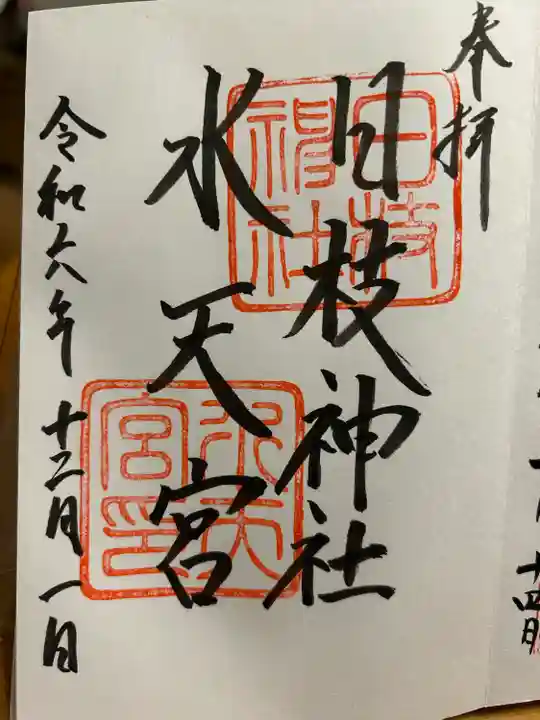 奉拝
日枝神社
水天宮
令和六年 十二月一日
日枝神社
水天宮印
十四日